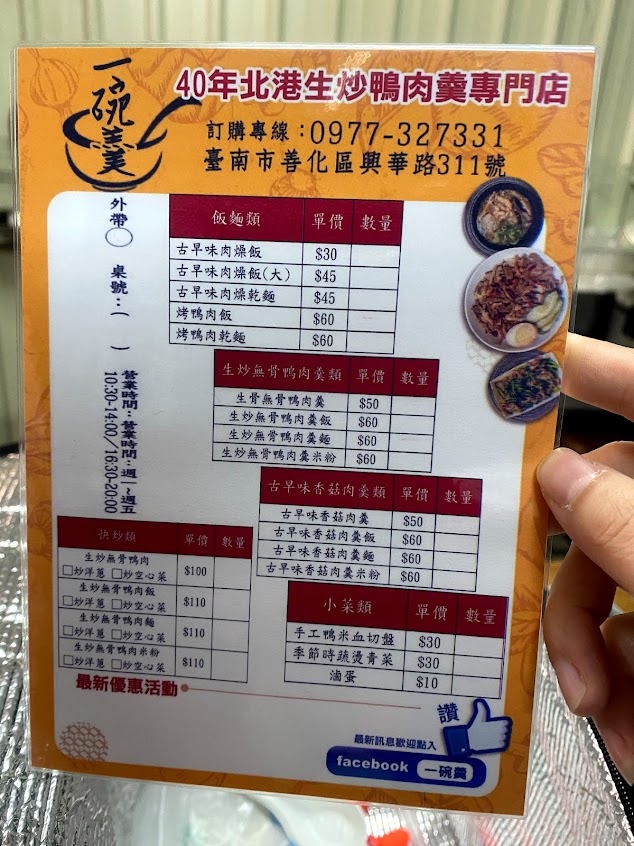 一碗羹
40年北港生炒鴨肉羹專門店
訂購專線：0977-327331
臺南市善化區興華路311號
外帶○ 桌號：( )
營業時間：營業時間：週一~週五
10:30-14:00/16:30-20:00
飯麵類 單價 數量
古早味肉燥飯 $30
古早味肉燥飯(大) $45
古早味肉燥乾麵 $45
烤鴨肉飯 $60
烤鴨肉乾麵 $60
生炒無骨鴨肉羹類 單價 數量
生骨無骨鴨肉羹 $50
生炒無骨鴨肉羹飯 $60
生炒無骨鴨肉羹麵 $60
生炒無骨鴨肉羹米粉 $60
古早味香菇肉羹類 單價 數量
古早味香菇肉羹 $50
古早味香菇肉羹飯 $60
古早味香菇肉羹麵 $60
古早味香菇肉羹米粉 $60
快炒類 單價 數量
生炒無骨鴨肉
□炒洋蔥 □炒空心菜 $100
生炒無骨鴨肉飯
□炒洋蔥 □炒空心菜 $110
生炒無骨鴨肉麵
□炒洋蔥 □炒空心菜 $110
生炒無骨鴨肉米粉
□炒洋蔥 □炒空心菜 $110
小菜類 單價 數量
手工鴨米血切盤 $30
季節時蔬燙青菜 $30
滷蛋 $10
最新優惠活動
讚
最新訊息歡迎點入
facebook 一碗羹